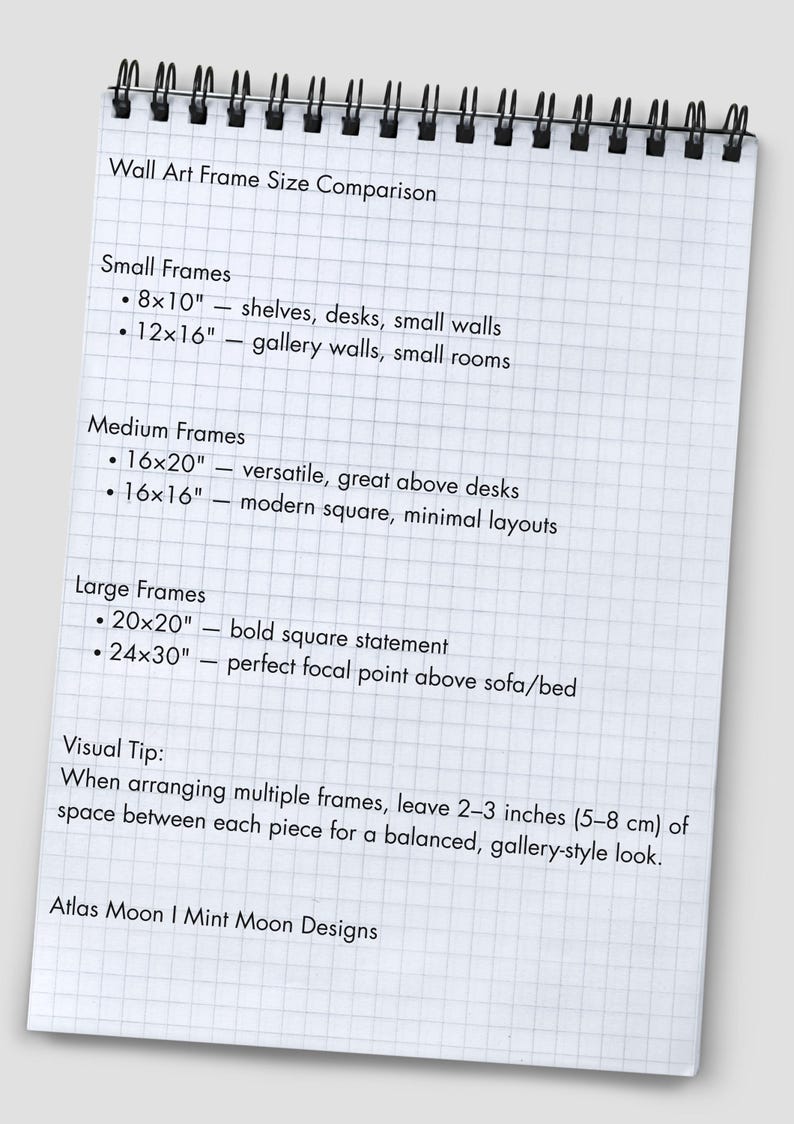 Wall Art Frame Size Comparison
Small Frames
• 8×10" — shelves, desks, small walls
• 12×16" — gallery walls, small rooms
Medium Frames
• 16×20" — versatile, great above desks
• 16×16" — modern square, minimal layouts
Large Frames
• 20×20" — bold square statement
• 24×30" — perfect focal point above sofa/bed
Visual Tip:
When arranging multiple frames, leave 2–3 inches (5–8 cm) of
space between each piece for a balanced, gallery-style look.
Atlas Moon I Mint Moon Designs